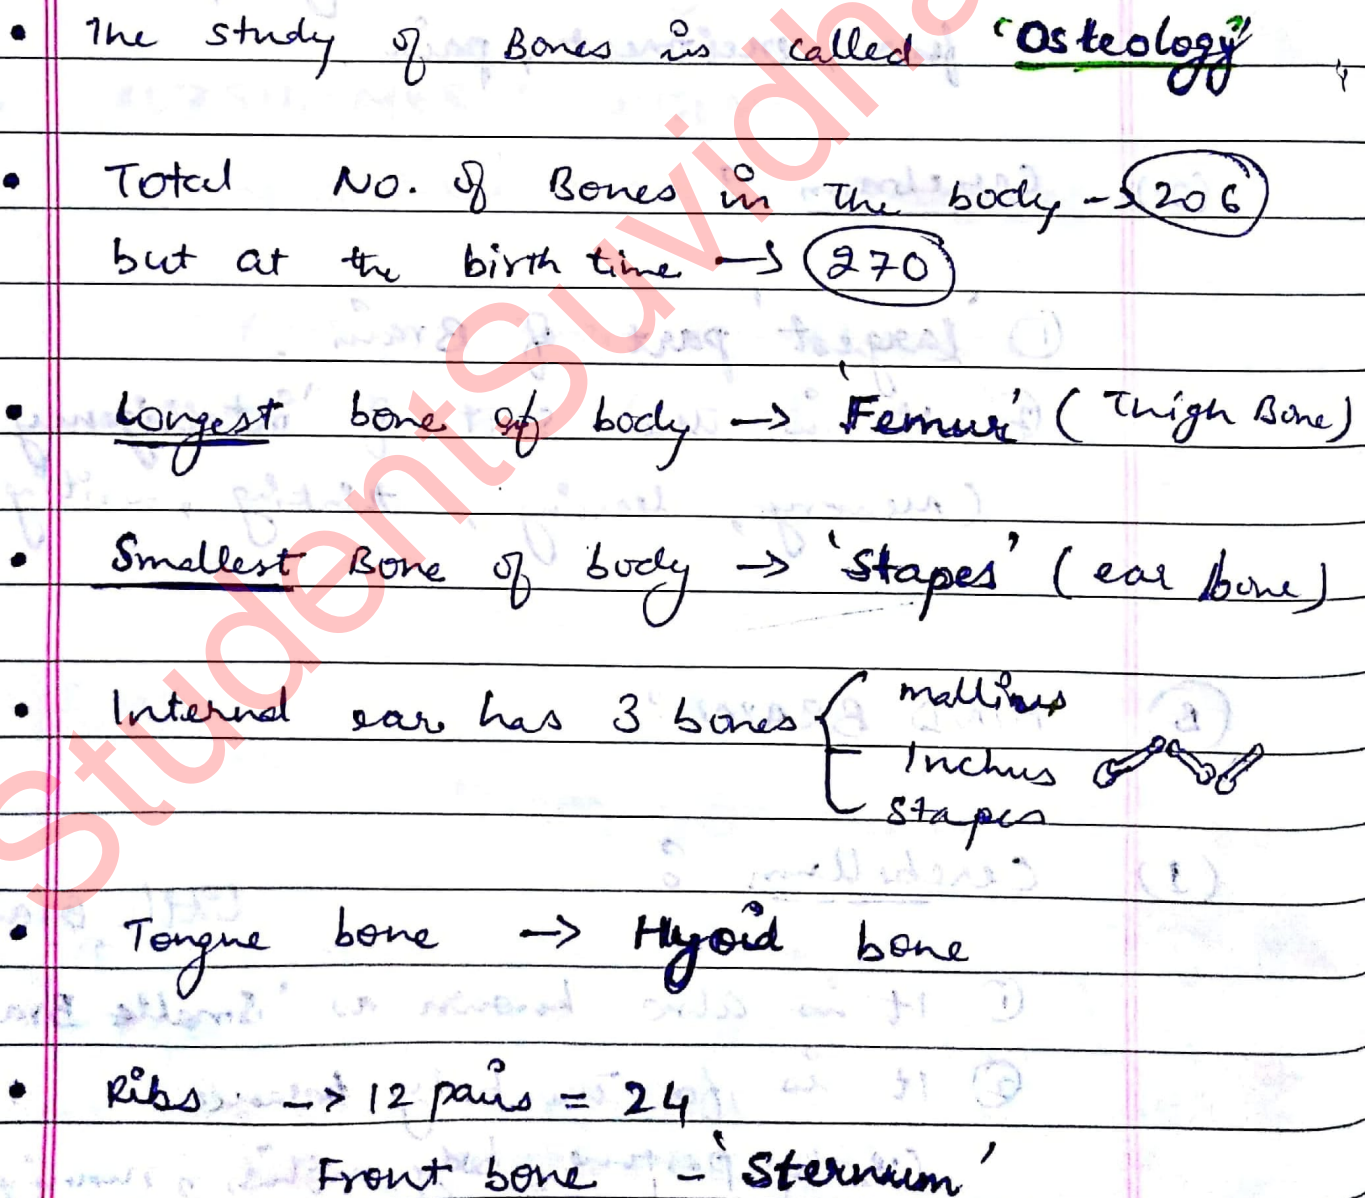 • The study of Bones is called 'Osteology'
• Total No. of Bones in the body -> 206
but at the birth time -> 270
• Longest bone of body -> 'Femur' (Thigh Bone)
• Smallest Bone of body -> 'Stapes' (ear bone)
• Internal ear has 3 bones { mallius
Inchus
Stapes
• Tongue bone -> Hyoid bone
• Ribs -> 12 pairs = 24
Front bone - 'Sternum'
StudentSuvidha